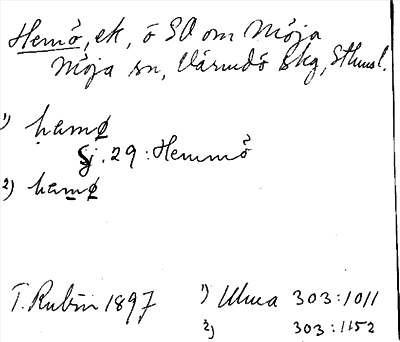 Hemö, ek, ö SO om Möja
Möja sn, Värmdö skg, Sthmsl.
1) hamø
Sj. 29: Hemmö
2) hamø
T. Rubin 1897 1) Uhua 303:1011
2) 303:1152